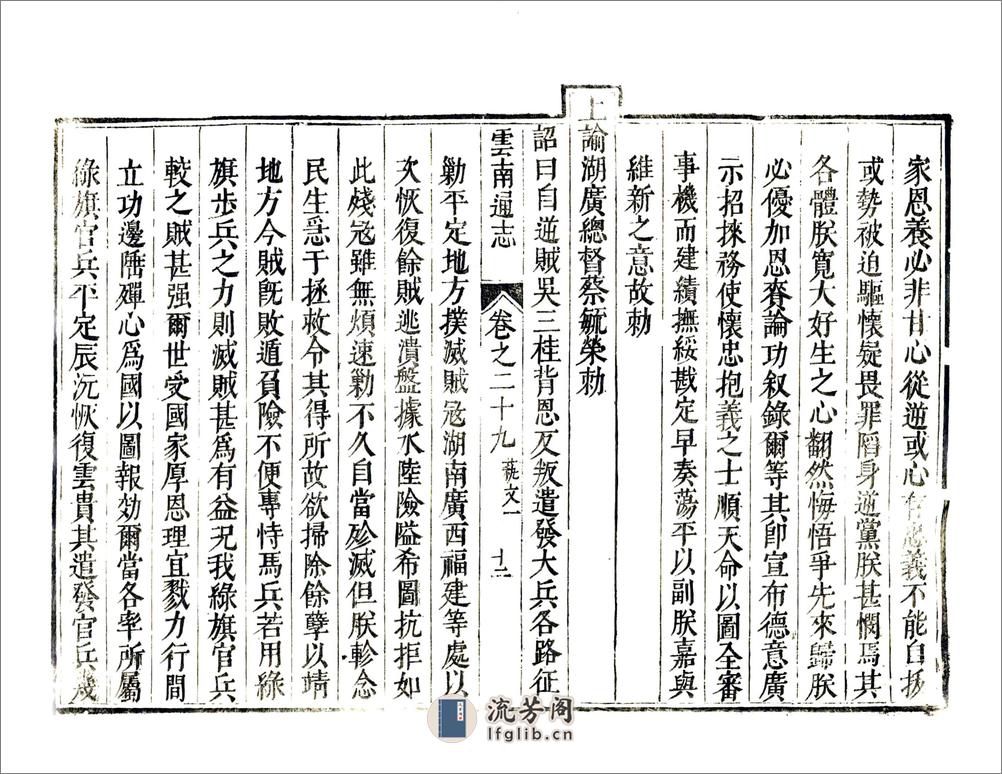 家恩養心非甘心從逆或心存忠義不能自拔
或勢被迫驅懷疑畏罪陷身逆黨朕甚憫焉其
各體朕寬大好生之心翻然悔悟爭先來歸朕
必優加恩賚論功叙錄爾等其卽宣布德意廣
示招徠務使懷忠抱義之士順天命以圖全審
事機而建績撫綏戡定早奏蕩平以副朕嘉與
維新之意故勅
上諭湖廣總督蔡毓榮勅
詔曰自逆賊吳三桂背恩反叛遣發大兵各路征
雲南通志 卷之二十九 蓺文一 十二
勦平定地方撲滅賊寇湖南廣西福建等處以
次恢復餘賊逃潰盤據水陸險隘希圖抗拒如
此殘寇雖無煩速勦不久自當殄滅但朕軫念
民生急于拯救令其得所故欲掃除餘孽以靖
地方今賊旣敗遁負險不便專恃馬兵若用綠
旗步兵之力則滅賊甚爲有益况我綠旗官兵
較之賊甚强爾世受國家厚恩理宜戮力行間
立功邊陲殫心爲國以圖報効爾當各率所屬
綠旗官兵平定辰沅恢復雲貴其遣發官兵幾
流芳阁
lfglib.cn